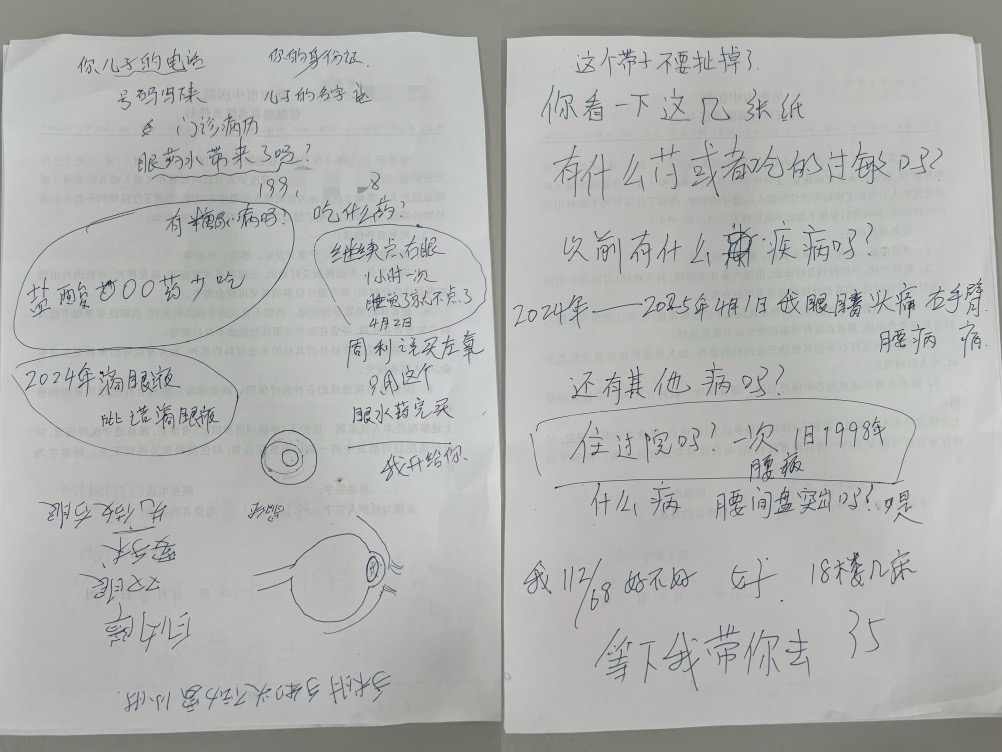 你儿子的电话 你的身份证
号码写来 儿子的名字
门诊病历
眼药水带来了吗?
199,
8
有糖尿病吗? 吃什么药?
盐酸 OO药少吃
继续点右眼
1小时一次
睡觉了就不点了
4月2日
2024年滴眼液
滴眼液
周利说买左氧
只用这个
眼水药完买
我开给你
先做右眼
要手术
双眼
白内障
手术时
1小时
这个带子不要扯掉了
你看一下这几张纸
有什么药或者吃的过敏吗?
以前有什么疾病吗?
2024年——2025年4月1日 我眼睛 头痛 右手臂
腰病 痛
还有其他病吗?
住过院吗? 一次 1日1998年
腰病
什么病 腰间盘突出吗? 是
我 112/68 好不好 好 18楼几床
等下我带你去 35